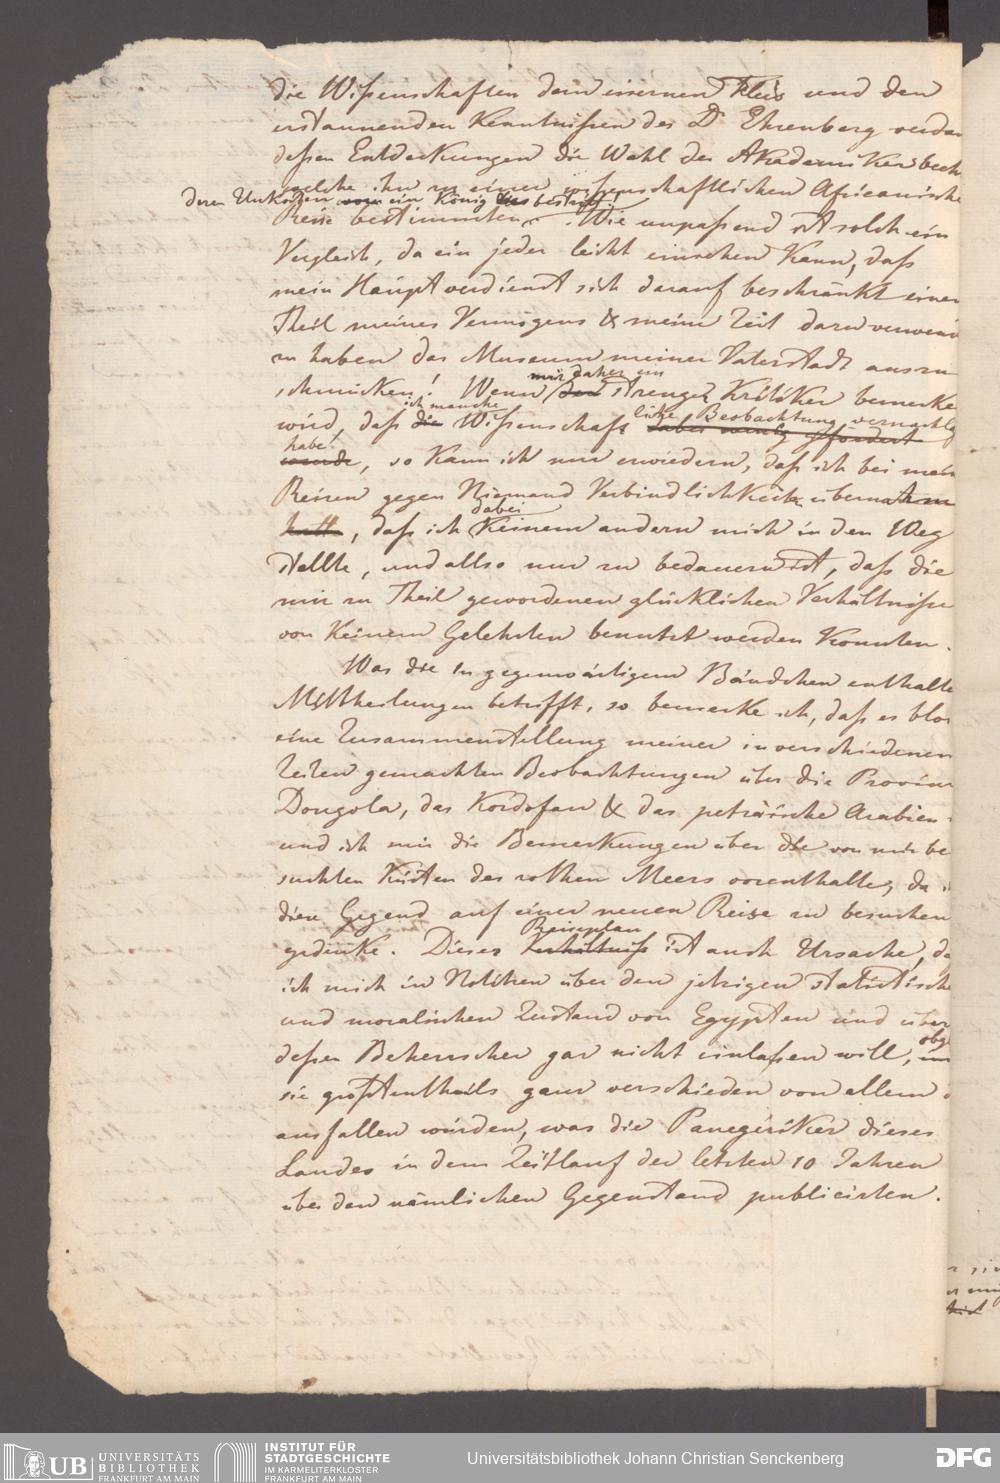 die Wißenschaften dem eisernen Fleis und den
erstaunenden Kenntnißen des Dr Ehrenberg verdan
deßen Entdeckungen die Wahl der Akademiker bech
welche ihn zu einer wißenschaftlichen Africanische
deren Unkosten von ein König bestritt!
Reise bestimmten. Wie unpaßend ist solch ein
Vergleich, da ein jeder leicht einsehen kann, daß
mein Hauptverdienst sich darauf beschränkt einen
Theil meines Vermögens & meine Zeit darzu verwend
zu haben das Museum meiner Vaterstadt auszu
schmücken! Wenn mir daher ein strenger Kritiker bemerke
wird, daß die ich manche Wißenschaft liche Beobachtung vernachläß
dabei wenig gefördert
habe!
wurde, so kann ich nur erwiedern, daß ich bei mein
Reisen gegen Niemand Verbindlichkeiten übernahm
hatte, daß ich dabei keinem andern mich in den Weg
stellte, und also nur zu bedauern ist, daß die
mir zu Theil gewordenen glücklichen Verhältniße
von keinem Gelehrten benutzt werden konnten.
Was die in gegenwärtigem Bändchen enthalte
Mittheilungen betrifft, so bemerke ich, daß es blos
eine Zusammenstellung meiner in verschiedenen
Zeiten gemachten Beobachtungen über die Provinz
Dongola, das Kordofan & das peträische Arabien
und ich mir die Bemerkungen über die von mir be
suchten Küsten des rothen Meers vorenthalte, da i
diese Gegend auf einer neuen Reise zu besuchen
gedenke. Dieser Reiseplan Verhältniß ist auch Ursache, da
ich mich in Notitzen über den jetzigen statistische
und moralischen Zustand von Egypten und über
deßen Beherrscher gar nicht einlaßen will, obg
sie größtentheils ganz verschieden von allem
ausfallen würden, was die Panegiriker dieses
Landes in dem Zeitlauf der letzten 10 Jahren
über den nämlichen Gegenstand publicirten.
UB UNIVERSITÄTS
BIBLIOTHEK
FRANKFURT AM MAIN
INSTITUT FÜR
STADTGESCHICHTE
IM KARMELITERKLOSTER
FRANKFURT AM MAIN
Universitätsbibliothek Johann Christian Senckenberg
DFG